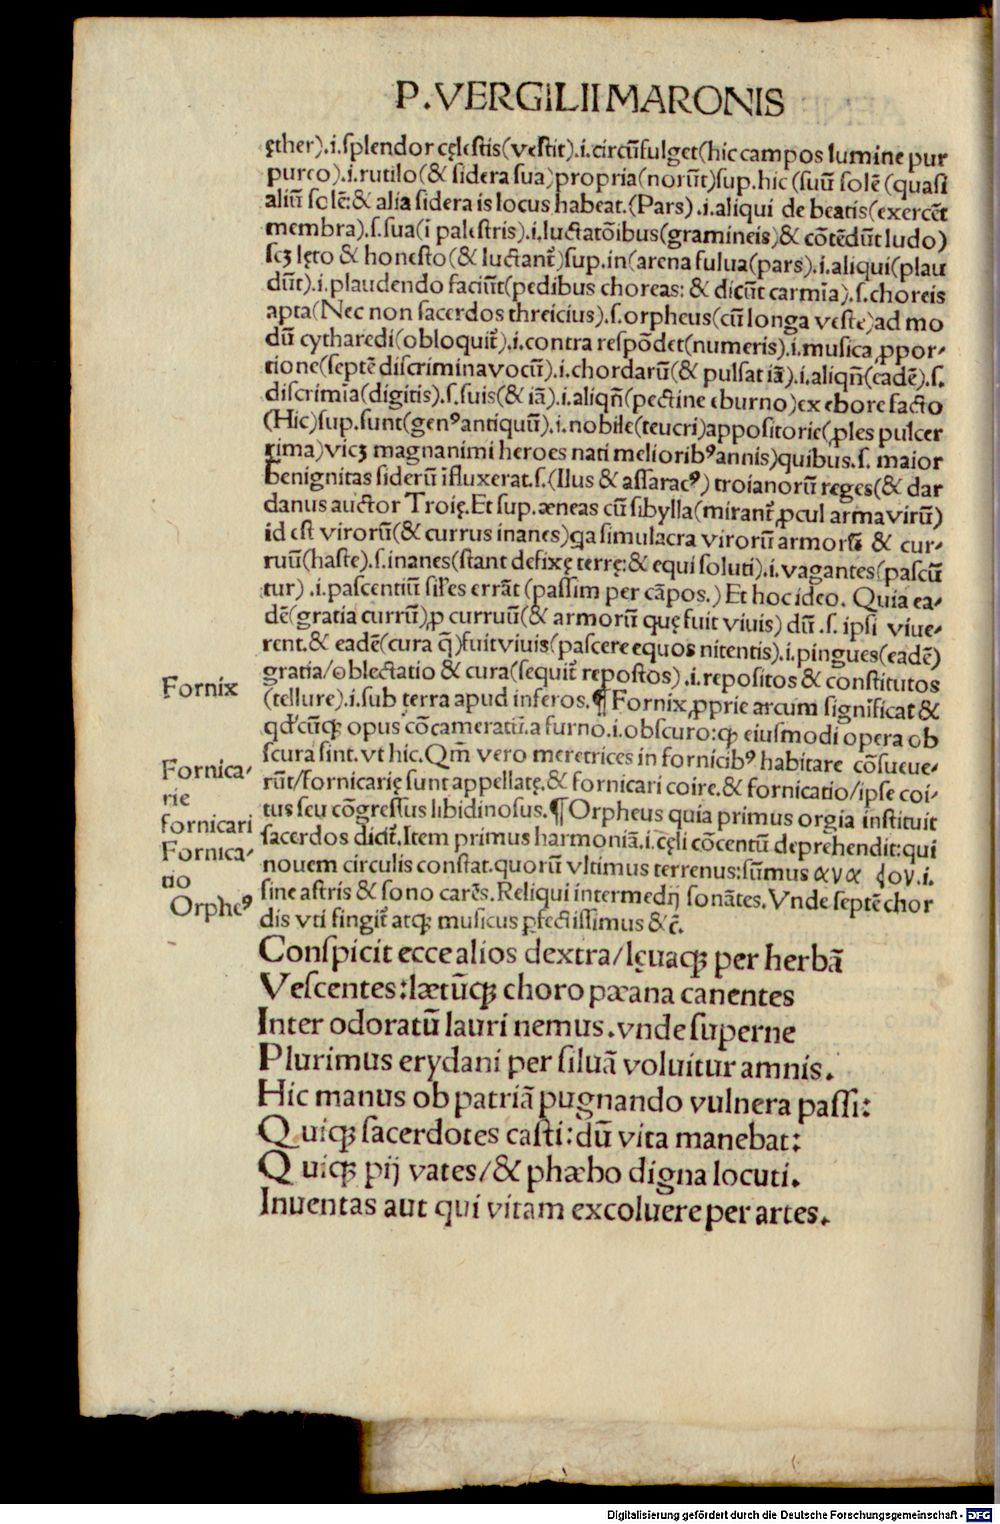 P.VERGILII MARONIS
ęther).i.splendor cęlestis(vestit).i.circũfulget(hic campos lumine pur
pureo).i.rutilo(& sidera sua)propria(norũt)sup.hic (suũ solẽ (quasi
aliũ solẽ:& alia sidera is locus habeat.(Pars).i.aliqui de beatis(exercẽt
membra).s.sua(i palestris).i.luctatõibus(gramineis)& cõtẽdũt ludo)
scꝫ lęto & honesto(& luctant᷑)sup.in(arena fulua(pars).i.aliqui(plau
dũt).i.plaudendo faciũt(pedibus choreas: & dicũt carmĩa).s.choreis
apta(Nec non sacerdos threicius).s.orpheus(cũ longa veste)ad mo
dũ cytharedi(obloquit᷑).i.contra respõdet(numeris).i.musica ꝓpor-
tione(septẽ discrimina vocũ).i.chordarũ(& pulsat iã).i.aliqñ(eadẽ).s.
discrimĩa(digitis).s.suis(& iã).i.aliqñ(pectine eburno)ex ebore facto
(Hic)sup.sunt(genꝰ antiquũ).i.nobile(teucri)appositorie(ꝓles pulcer
rima)vicꝫ magnanimi heroes nati melioribꝰ annis)quibus.s. maior
benignitas siderũ ĩfluxerat.s.(Ilus & assaracꝰ) troianorũ reges(& dar
danus auctor Troię.Et sup.æneas cũ sibylla(mirant᷑ ꝓcul arma virũ)
id est virorũ(& currus inanes)qa simulacra virorũ armorũ & cur-
ruũ(haste).s.inanes(stant defixę terrę:& equi soluti).i.vagantes(pascũ
tur) .i.pascentiũ siłes errãt (passim per cãpos.) Et hoc ideo. Quia ea-
dẽ(gratia currũ)ꝓ curruũ(& armorũ quę fuit viuis) dũ .s. ipsi viue-
rent.& eadẽ(cura q̃)fuit viuis(pascere equos nitentis).i.pingues(eadẽ)
gratia/oblectatio & cura(sequit᷑ repostos) .i.repositos & constitutos
(tellure).i.sub terra apud inferos.¶ Fornix ꝓprie arcum significat &
qđcũqꝫ opus cõcameratũ.a furno.i.obscuro:qꝫ eiusmodi opera ob
scura sint.vt hic.Qm̃ vero meretrices in fornicibꝰ habitare cõsueue-
rũt/fornicarię sunt appellatę.& fornicari coire.& fornicatio/ipse coi-
tus seu cõgressus libidinosus.¶ Orpheus quia primus orgia instituit
sacerdos dicit᷑.Item primus harmoniã.i.cęli cõcentũ deprehendit:qui
nouem circulis constat.quorũ vltimus terrenus:sũmus
sine astris & sono carẽs.Reliqui intermedij sonãtes.Vnde septẽ chor
dis vti fingit᷑ atqꝫ musicus ꝑfectissimus &c̃.
Fornix
Fornica-
rie
fornicari
Fornica-
tio
Orpheꝰ
Conspicit ecce alios dextra/lęuaqꝫ per herbã
Vescentes:lætũqꝫ choro pæana canentes
Inter odoratũ lauri nemus.vnde superne
Plurimus erydani per siluã voluitur amnis.
Hic manus ob patriã pugnando vulnera passi:
Quiqꝫ sacerdotes casti:dũ vita manebat:
Quiqꝫ pij vates/& phæbo digna locuti.
Inuentas aut qui vitam excoluere per artes.
Digitalisierung gefördert durch die Deutsche Forschungsgemeinschaft - DFG